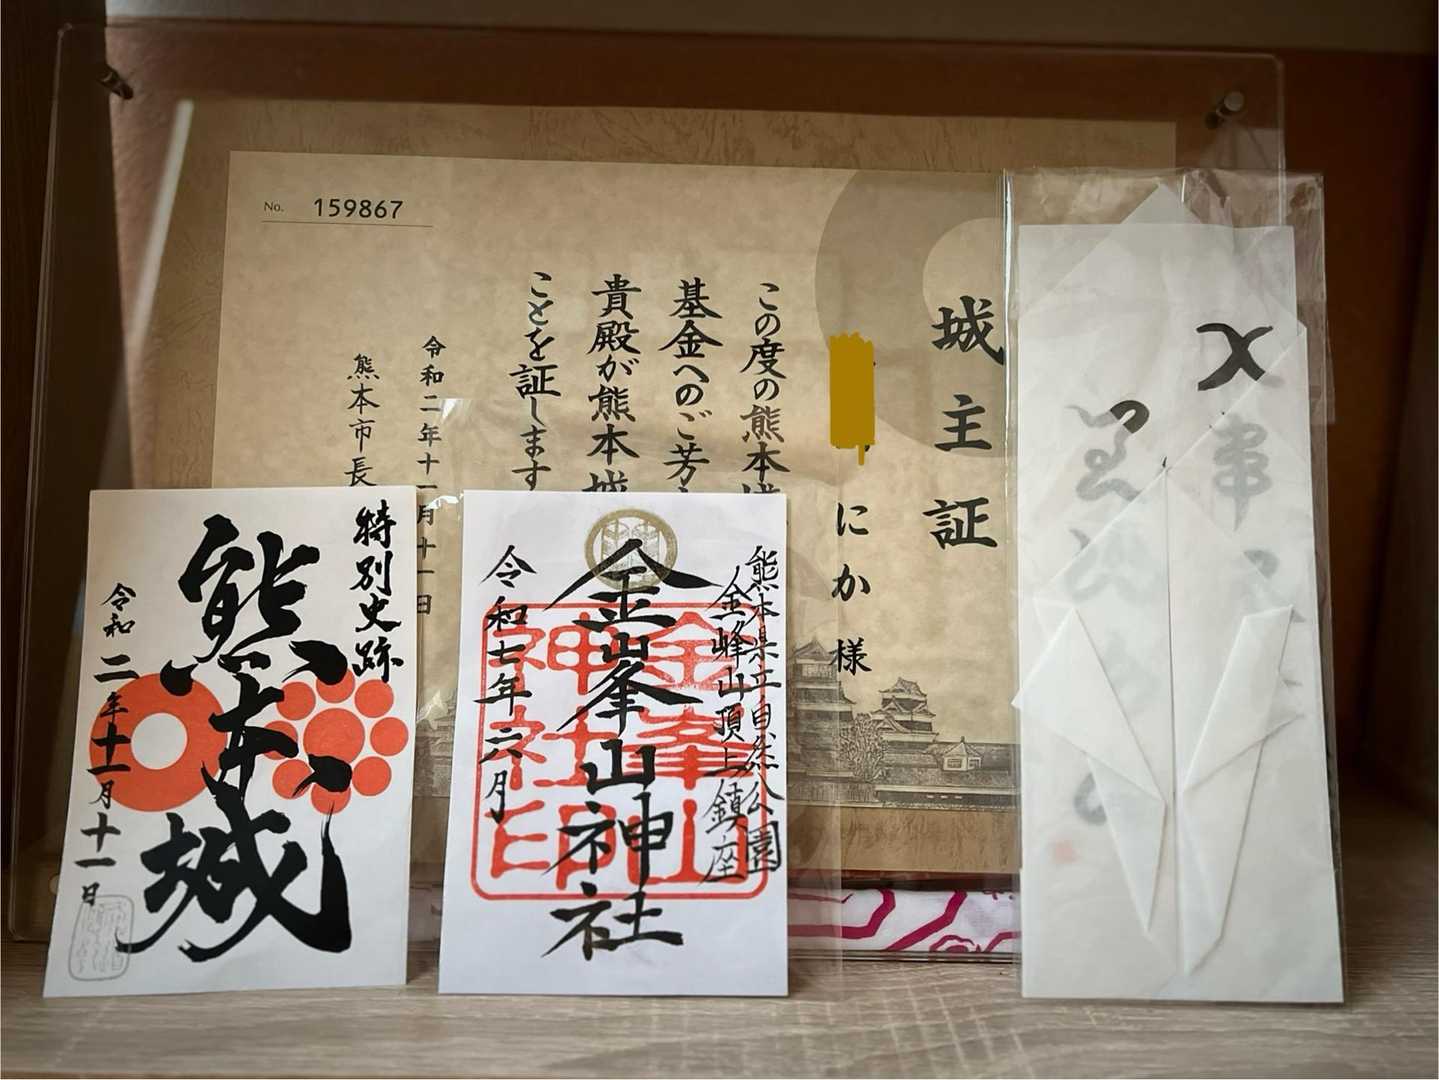 No. 159867
城主証
にか 様
この度の熊本城
基金へのご芳
貴殿が熊本城
ことを証します
令和二年十一月十一日
熊本市長
特別史跡
熊本城
令和二年十一月十一日
熊本県立自然公園
金峰山頂上鎮座
金峯山神社
令和七年六月
金峯山
神社印